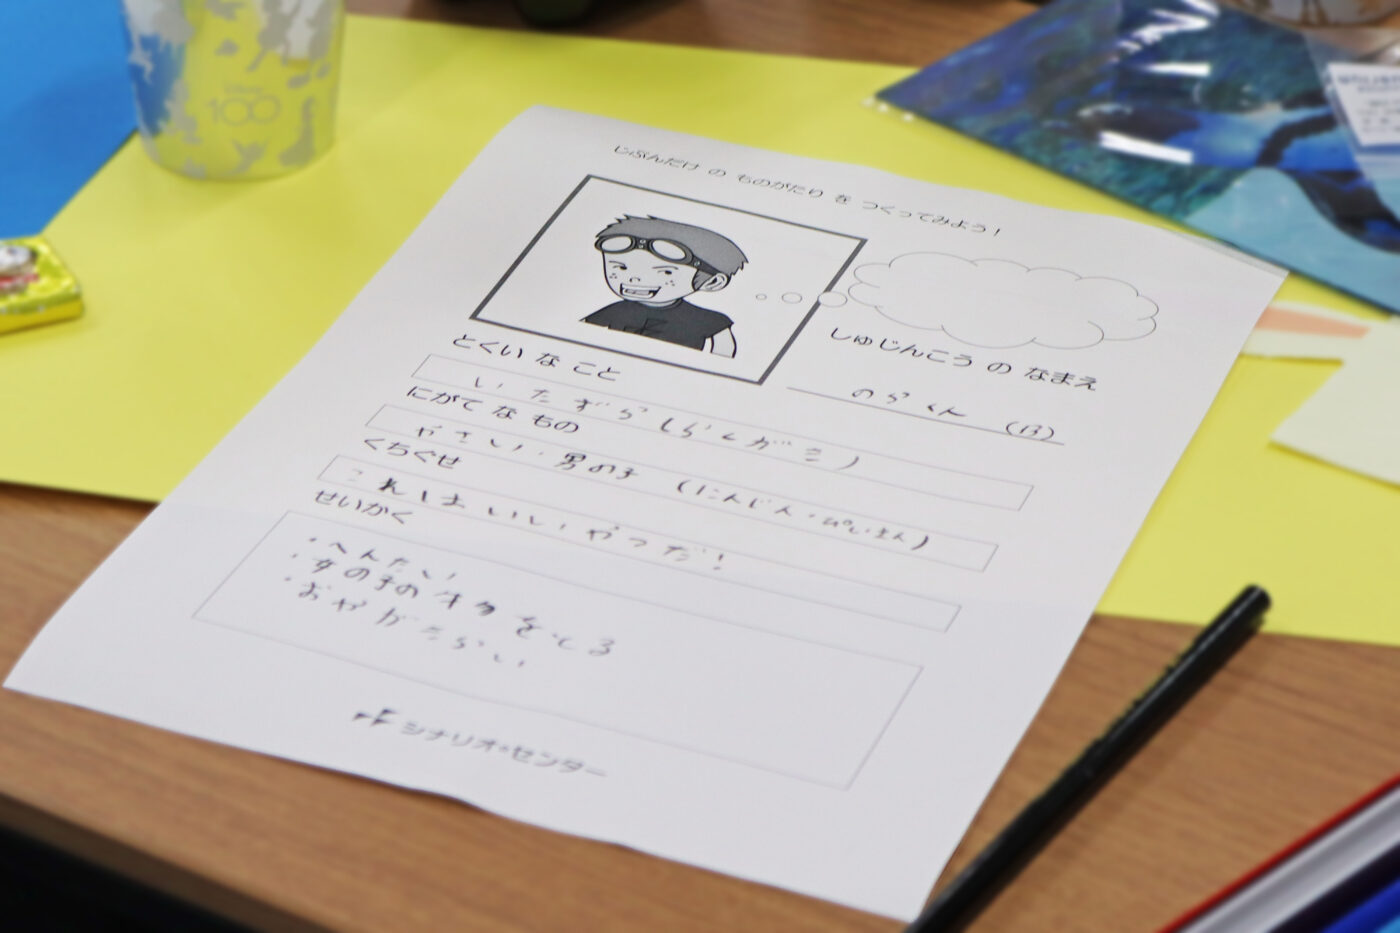 100
じぶんだけ の ものがたり を つくってみよう！
しゅじんこう の なまえ
のらくん (13)
とくい な こと
いたずら(らくがき)
にがて な もの
やさい・男の子 (にんじん・ぴいまん)
くちぐせ
これはいいやつだ!
せいかく
・へんたい
・女の子のオクをとる
・おやがきらい
シナリオ・センター